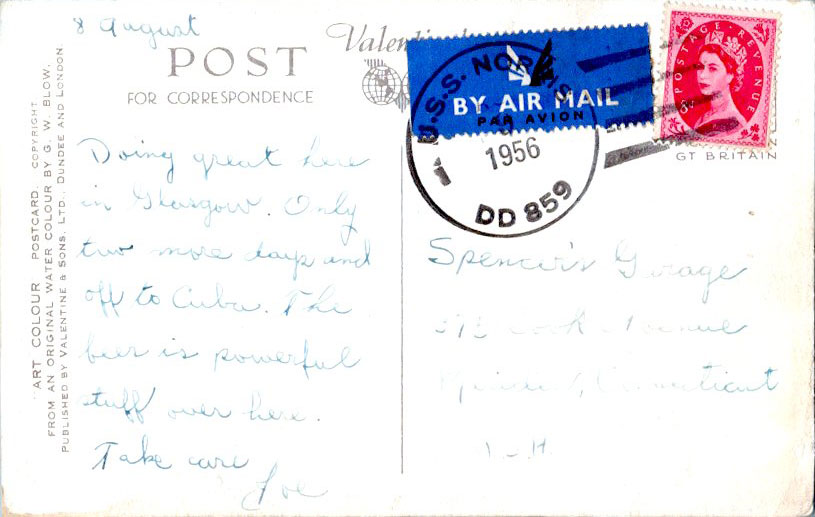 8 August
POST
FOR CORRESPONDENCE
"ART COLOUR" POSTCARD. COPYRIGHT
FROM AN ORIGINAL WATER COLOUR BY G. W. BLOW.
PUBLISHED BY VALENTINE & SONS, LTD., DUNDEE AND LONDON.
Doing great here
in Glasgow. Only
two more days and
off to Cuba. The
beer is powerful
stuff over here.
Take care
Joe
BY AIR MAIL
PAR AVION
U.S.S. NORRIS
1956
DD 859
POSTAGE REVENUE
GT BRITAIN
Spencer's Garage
Cook Avenue
Connecticut